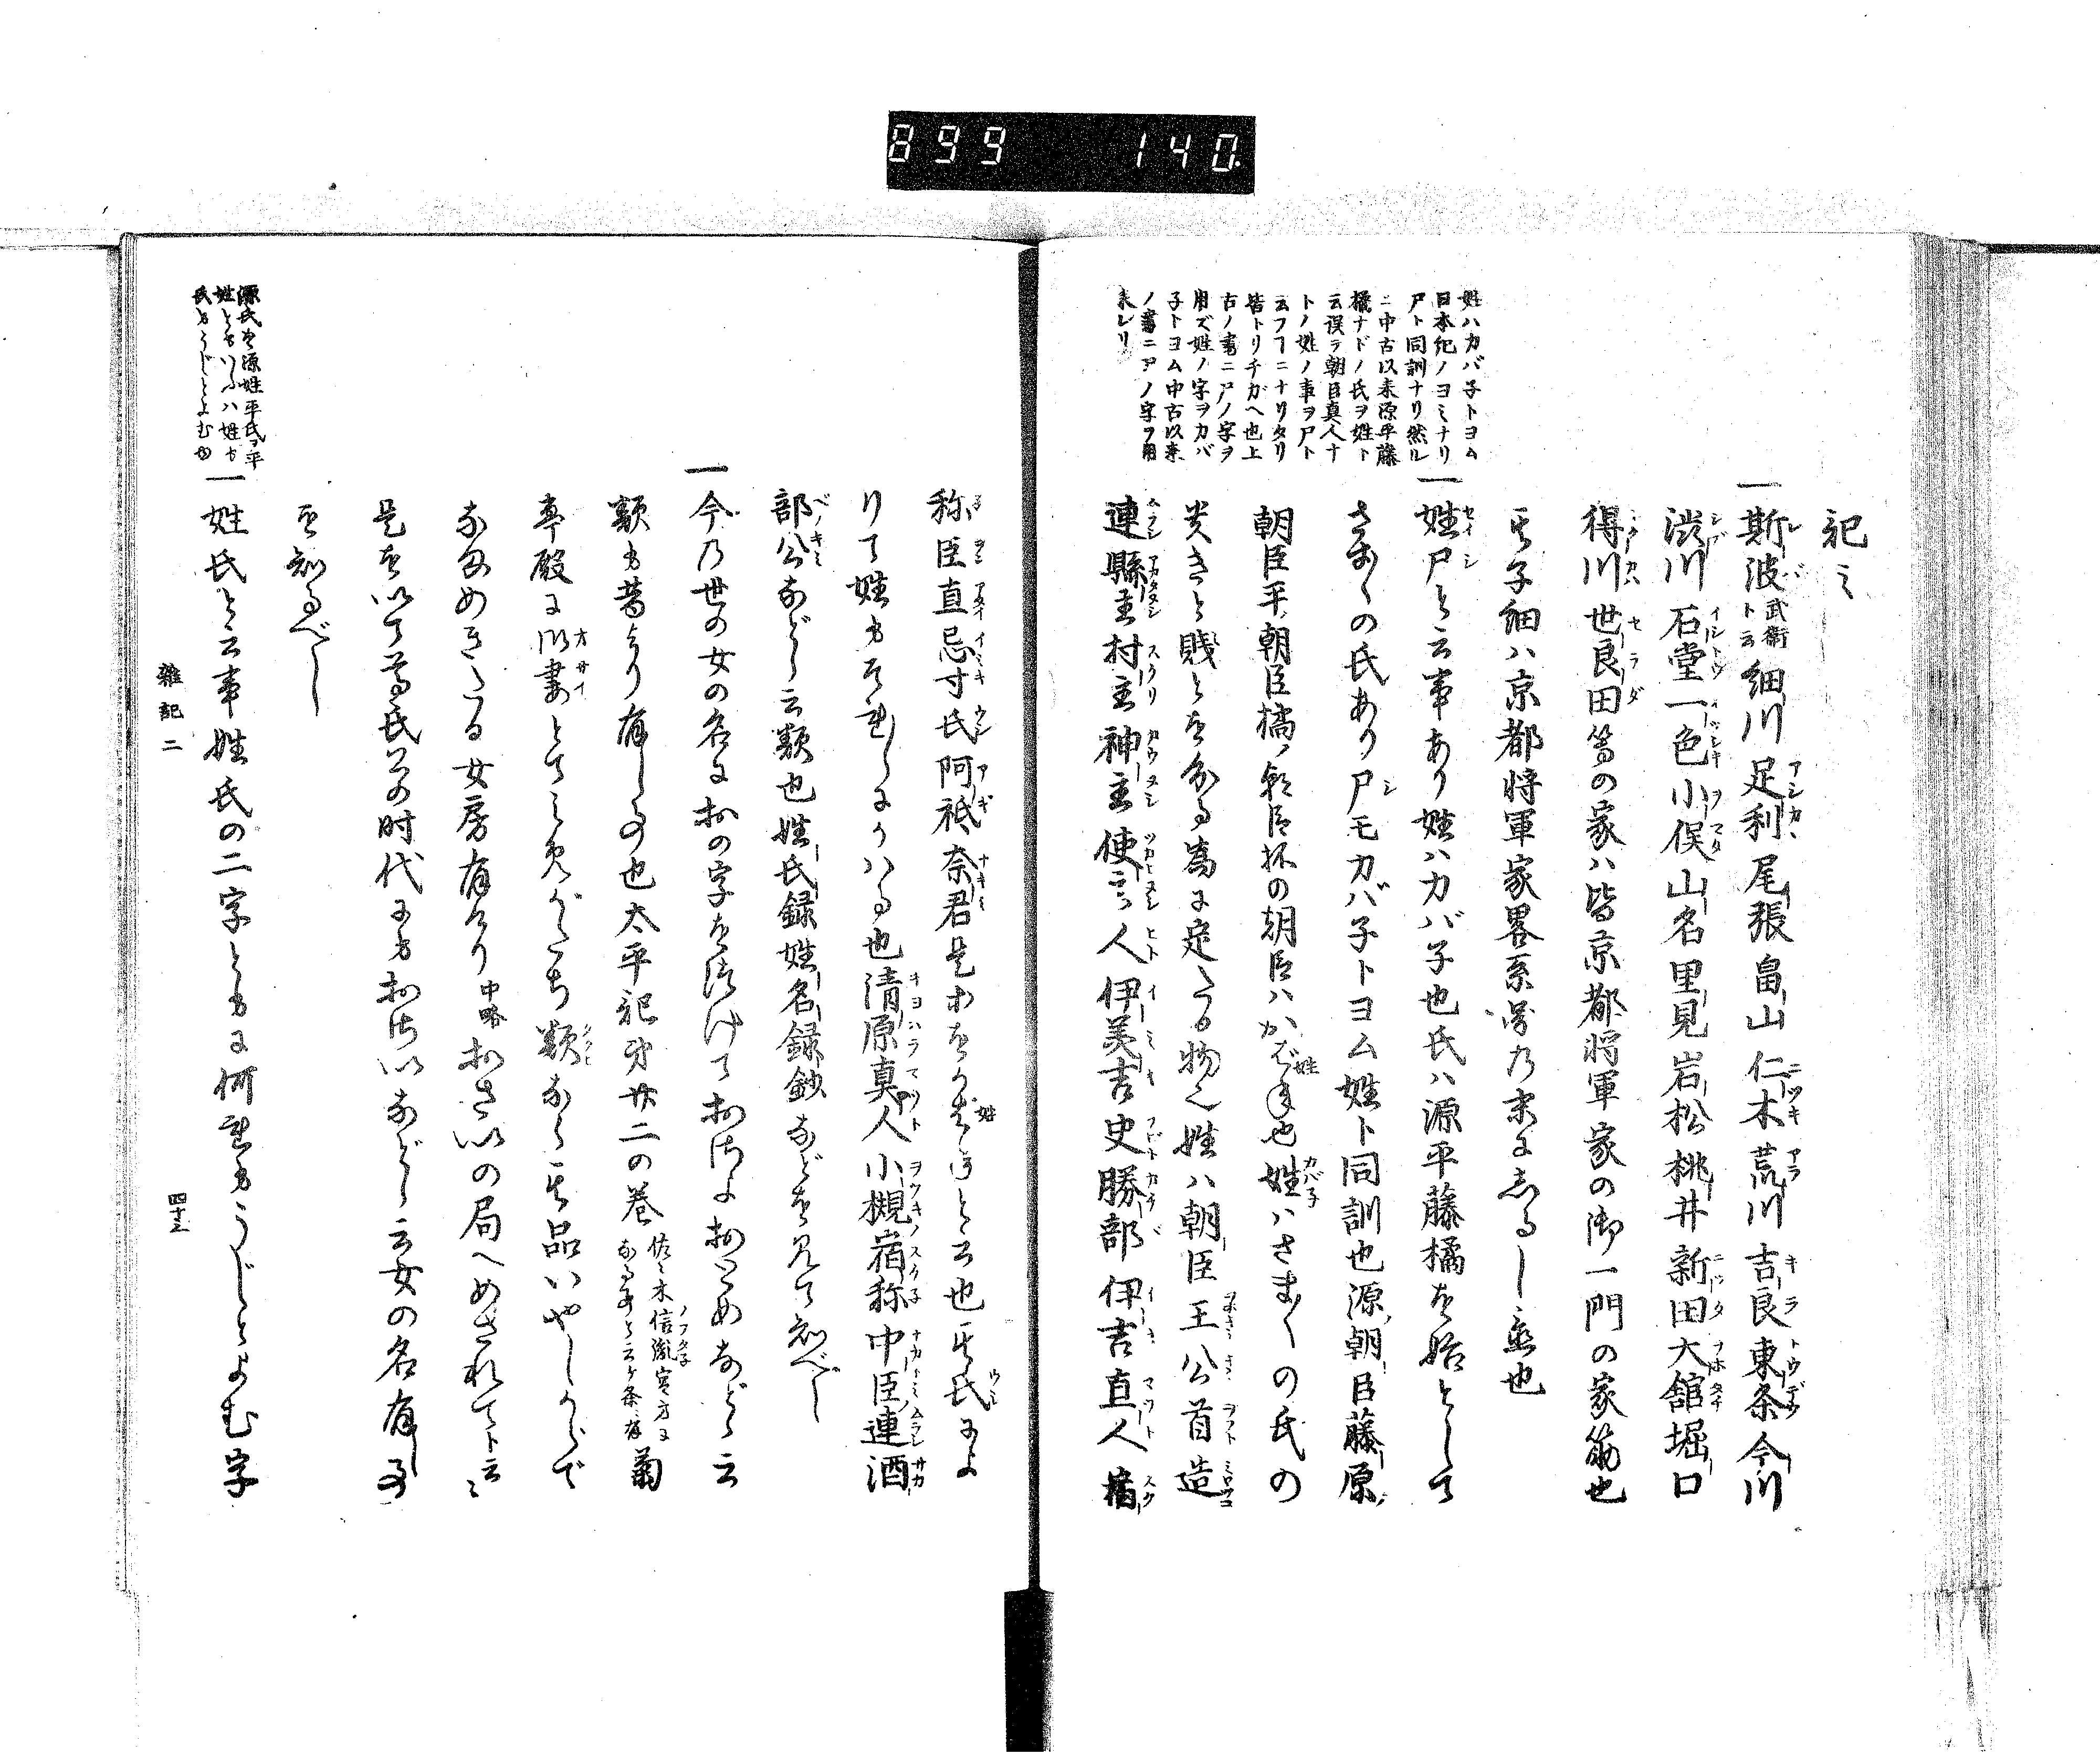 899 140.
記之
一斯波武衛ト云細川足利尾張畠山仁木荒川吉良東条今川
渋川石堂一色小俣山名里見岩松桃井新田大舘堀口
得川世良田等の家ハ皆京都将軍家の御一門の家筋也
其子細ハ京都将軍家畧系図乃末にしるし置也
姓ハカバ子トヨム
日本紀ノヨミナリ
尸ト同訓ナリ然ル
ニ中古以来源平藤
橘ナドノ氏ヲ姓ト
云誤ラ朝臣真人ナ
トノ姓ノ事ヲ尸ト
云フフニナリタリ
皆トリチガヘ也上
古ノ書ニ尸ノ字ヲ
用ズ姓ノ字ヲカバ
子トヨム中古以来
ノ書ニ尸ノ字ヲ用
来レリ
一姓尸と云事あり姓ハカバ子也氏ハ源平藤橘を始として
さま〱の氏あり尸モカバ子トヨム姓ト同訓也源朝臣藤原
朝臣平朝臣橘ノ朝臣抔の朝臣ハかばね也姓ハさま〱の氏の
貴きと賤とを分る為に定たる物也姓ハ朝臣王公首造
連縣主村主神主使主人伊美吉史勝部伊吉直人宿
称臣直忌寸氏阿祗奈君是等をかばねと云也其氏によ
りて姓もそれ〱にかハる也清原真人小槻宿称中臣連酒
部公などゝ云類也姓氏録姓名録鈔などを見て知べし
一今乃世の女の名におの字を付けておちよおとめなどゝ云
類も昔より有し事也太平記第廿二の巻佐々木信胤宮方になる事と云ケ条ニ有菊
亭殿に御妻とてみめがたち類なく其品いやしからで
なまめきたる女房有けり中略おさいの局へめされてト云〻
是を以て尊氏公の時代にもおちいなどゝ云女の名有し事
を知るべし
源氏を源姓平氏ヲ平
姓ともいふハ姓も
氏もうじとよむ也
一姓氏と云事姓氏の二字ともに何れもうじとよむ字
雑記二
四十三